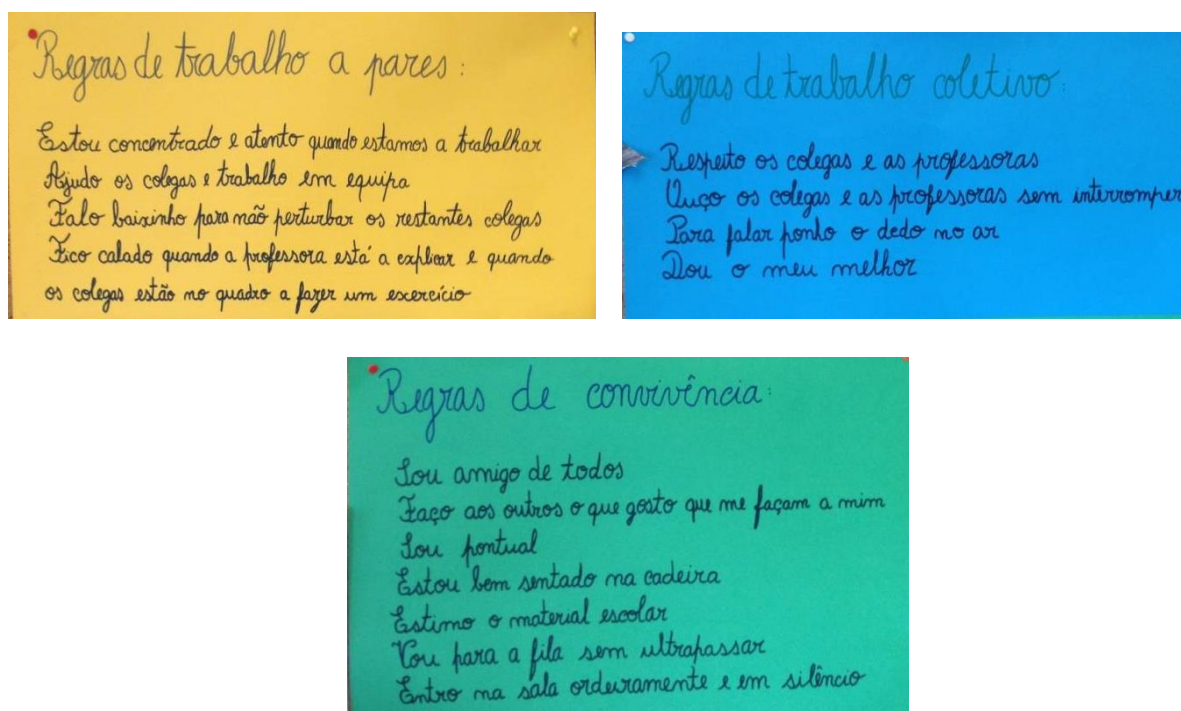 Regras de trabalho a pares:
Estou concentrado e atento quando estamos a trabalhar
Ajudo os colegas e trabalho em equipa
Falo baixinho para não perturbar os restantes colegas
Fico calado quando a professora está a explicar e quando
os colegas estão no quadro a fazer um exercício
Regras de trabalho coletivo:
Respeito os colegas e as professoras
Ouço os colegas e as professoras sem interromper
Para falar ponho o dedo no ar
Dou o meu melhor
Regras de convivência:
Sou amigo de todos
Faço aos outros o que gosto que me façam a mim
Sou pontual
Estou bem sentado na cadeira
Estimo o material escolar
Vou para a fila sem ultrapassar
Entro na sala ordeiramente e em silêncio